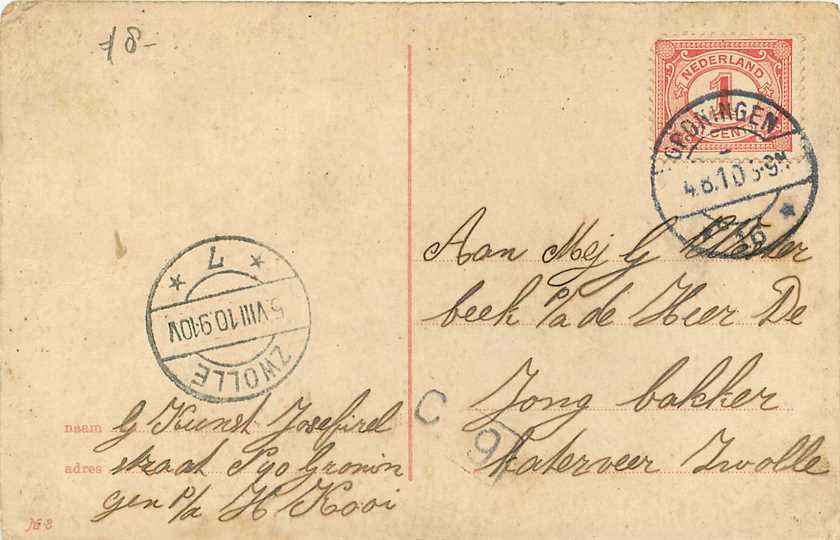 18-
NEDERLAND
1
CENT
GRONINGEN
4.8.10
16
Aan Mej G Wester
beek p/a de Heer De
Jong bakker
Katerveer Zwolle
7
5.VIII.10.9-10V
ZWOLLE
C 9
naam G Kunst
adres straat Gronin
gen p/a H Kooi
№ 8